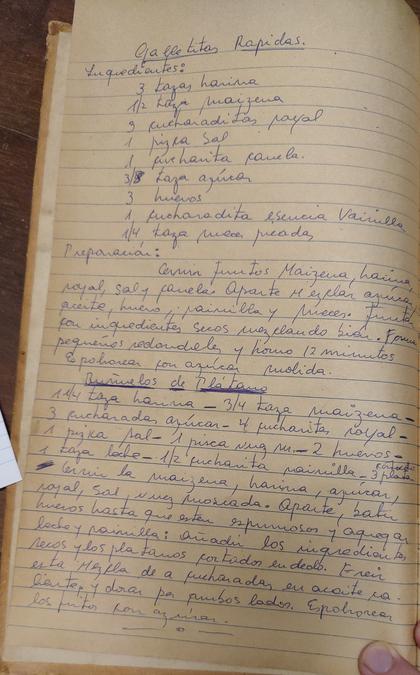 Galletitas Rapidas.
Ingredientes:
3 tazas harina
1/2 taza maizena
3 cucharaditas royal
1 pizka sal
1 cucharita canela.
3/8 taza azúcar
3 huevos
1 cucharadita esencia Vainilla
1/4 taza nueces picadas
Preparación:
Cernir juntos Maizena, harina,
royal, sal y canela. Aparte Mezclar azucar,
aceite, huevo, vainilla y nueces. Junte
con ingredientes secos mezclando bien. Forme
pequeños redondeles y horno 12 minutos
Espolvorear con azúcar molida.
Buñuelos de Plátano
1 1/4 taza harina - 3/4 taza maizena -
3 cucharadas azúcar - 4 cucharitas royal -
1 pizka sal - 1 pisca nuez m. - 2 huevos -
1 taza leche - 1/2 cucharita vainilla - 3 plata
Cernir la maizena, harina, azúcar,
royal, sal, nuez moscada. Aparte, batir
huevos hasta que esten espumosos y agregar
leche y vainilla: añadir los ingredientes
secos y los platanos cortados en dedo. Freir
esta Mezcla de a cucharadas en aceite ca
liente, y dorar por ambos lados. Espolvorear
los fritos con azúcar.